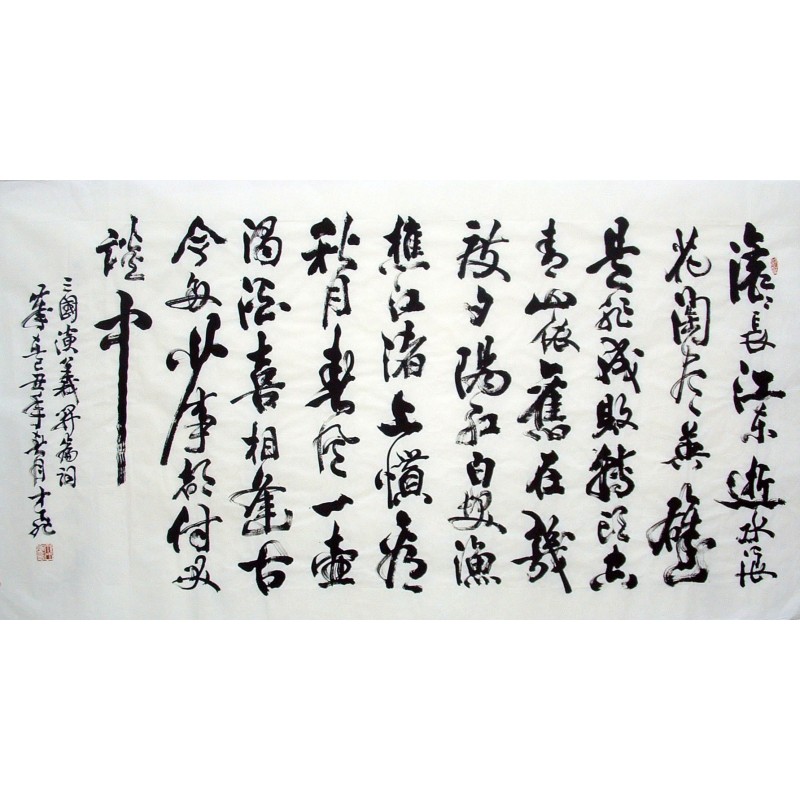 滚滚長江东逝水浪
花淘尽英雄
是非成敗轉头空
青山依舊在幾
度夕陽红白发漁
樵江渚上慣看
秋月春风一壶
濁酒喜相逢古
今多少事都付笑
談中
三國演義開篇词
己丑年春月